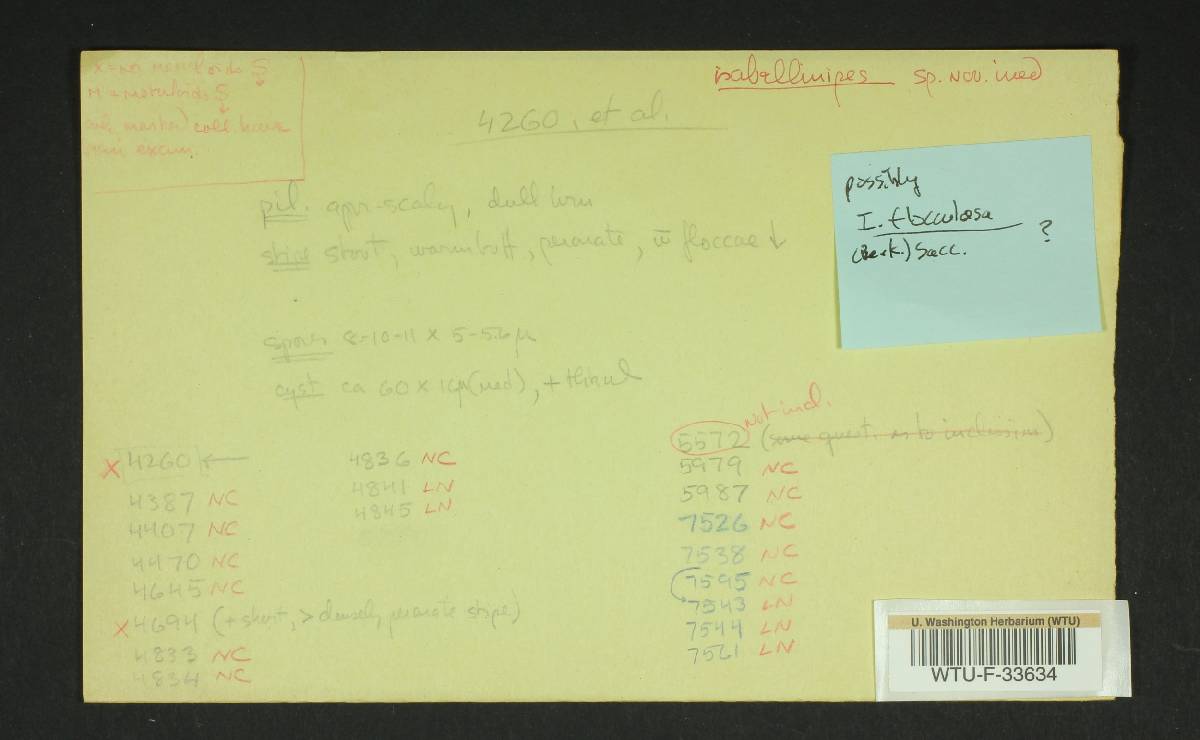 isabellinipes sp. nov. ined
4260, et al.
possibly
I. flocculosa
(Berk.) Sacc.
?
pil. appr-scaly, dull brn
stipe stout, warm buff, peronate, w̄ floccae ↓
spores 8-10-11 x 5-5.6 µ
cyst ca 60 x 16µ (med),
X 4260 ←
4387 NC
4407 NC
4470 NC
4645 NC
X 4694 (+ short, > densely peronate stipe)
4833 NC
4834 NC
4836 NC
4841 LN
4845 LN
not incl.
5572 (some quest. as to inclusion)
5979 NC
5987 NC
7526 NC
7538 NC
7595 NC
7543 LN
7544 LN
7561 LN
U. Washington Herbarium (WTU)
WTU-F-33634